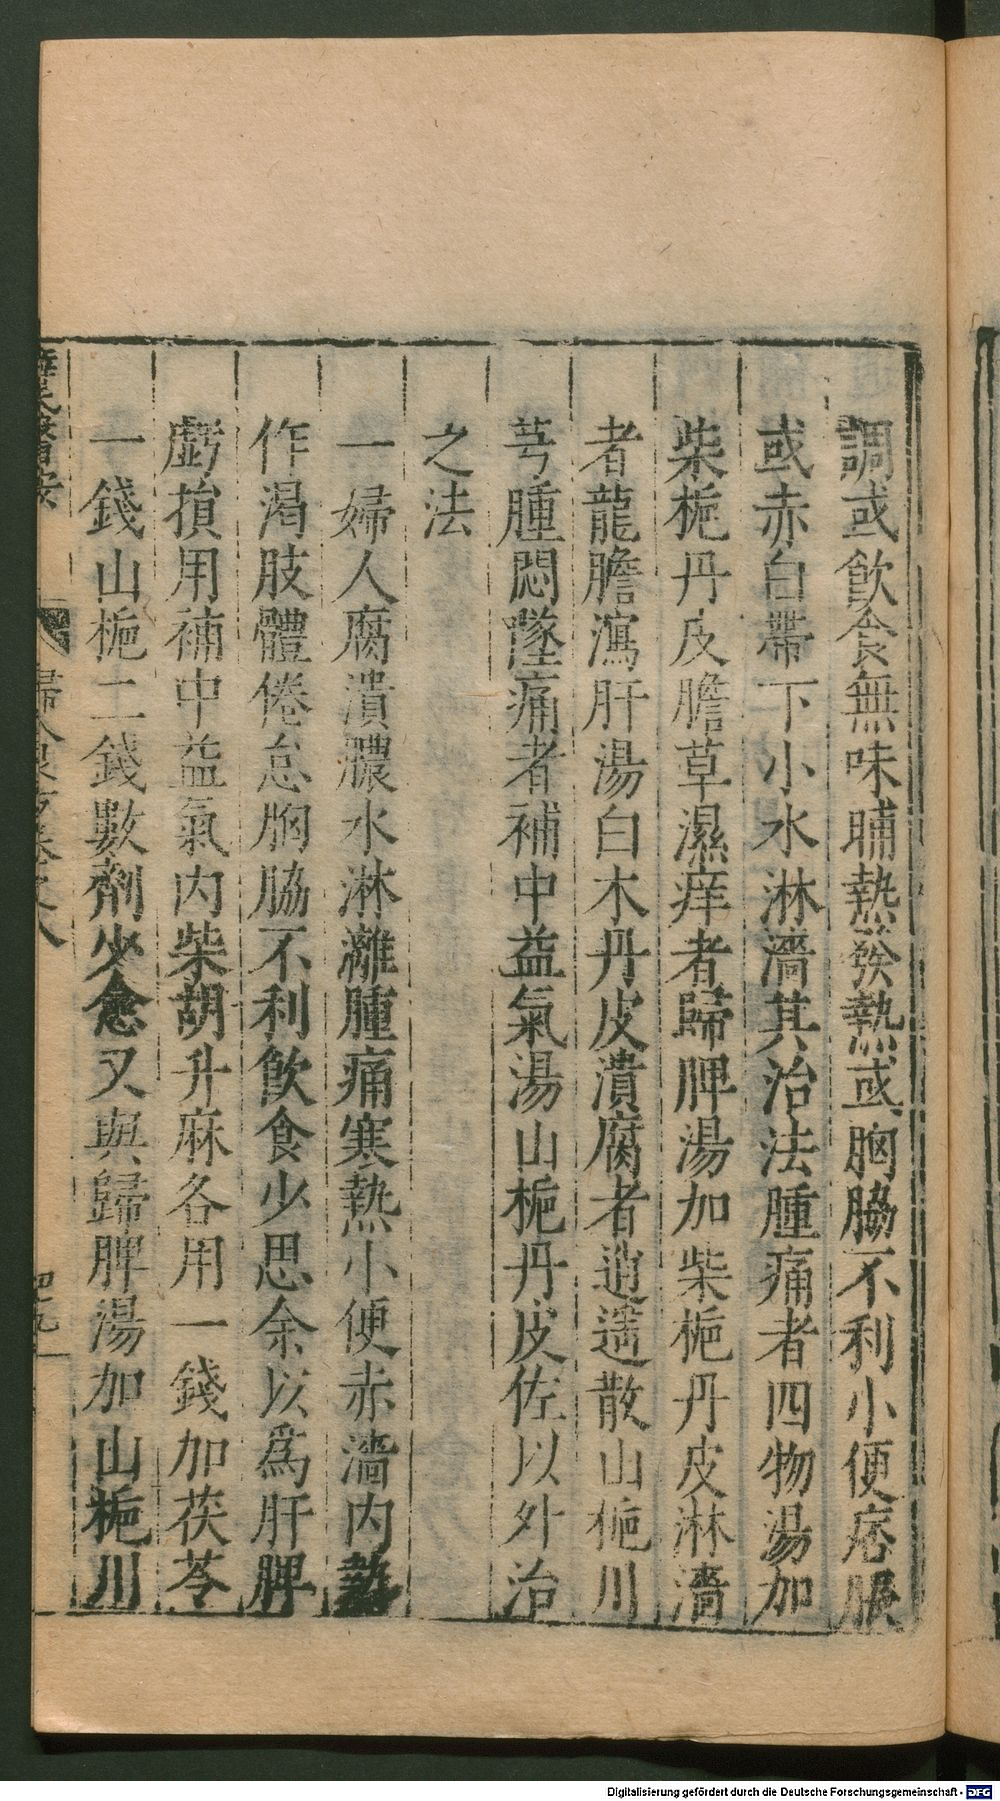 調或飲食無味晡熱發熱或胸脇不利小便痞脹
或赤白帶下小水淋濇其治法腫痛者四物湯加
柴梔丹皮膽草濕痒者歸脾湯加柴梔丹皮淋濇
者龍膽瀉肝湯白木丹皮潰腐者逍遥散山梔川
芎腫悶墜痛者補中益氣湯山梔丹皮佐以外治
之法
一婦人腐潰膿水淋漓腫痛寒熱小便赤濇内熱
作渇肢體倦怠胸脇不利飲食少思余以爲肝脾
虧損用補中益氣内柴胡升麻各用一錢加茯苓
一錢山梔二錢數劑少愈又與歸脾湯加山梔川
婦人良方卷之
Digitalisierung gefördert durch die Deutsche Forschungsgemeinschaft - DFG